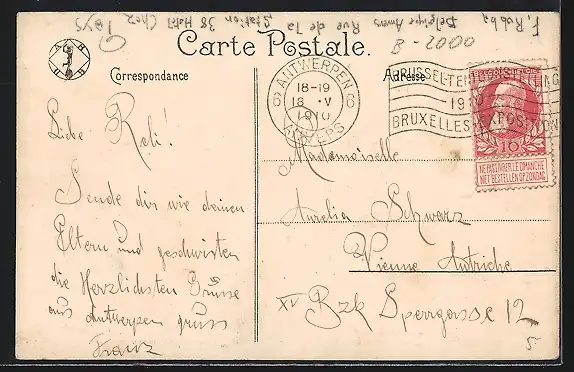 F. Robba
Belgique Anvers Rue de la
Station 38 Hotel Chez
Carte Postale.
B-2000
Correspondance
Adresse
ANTWERPEN
18-19
18 V
1910
ANVERS
8 8
BRUSSEL-TENTOONSTELLING
1910
BRUXELLES-EXPOSITION
10
NE PAS LIVRER LE DIMANCHE
NIET BESTELLEN OP ZONDAG
Liebe Reli!
Sende dir wie deinen
Eltern und geschwistern
die Herzlichsten Grüsse
aus Antwerpen gruss
Franz
Mademoiselle
Aurelia Schwarz
Vienne Autriche
XV Bzk Sperrgasse 12
5